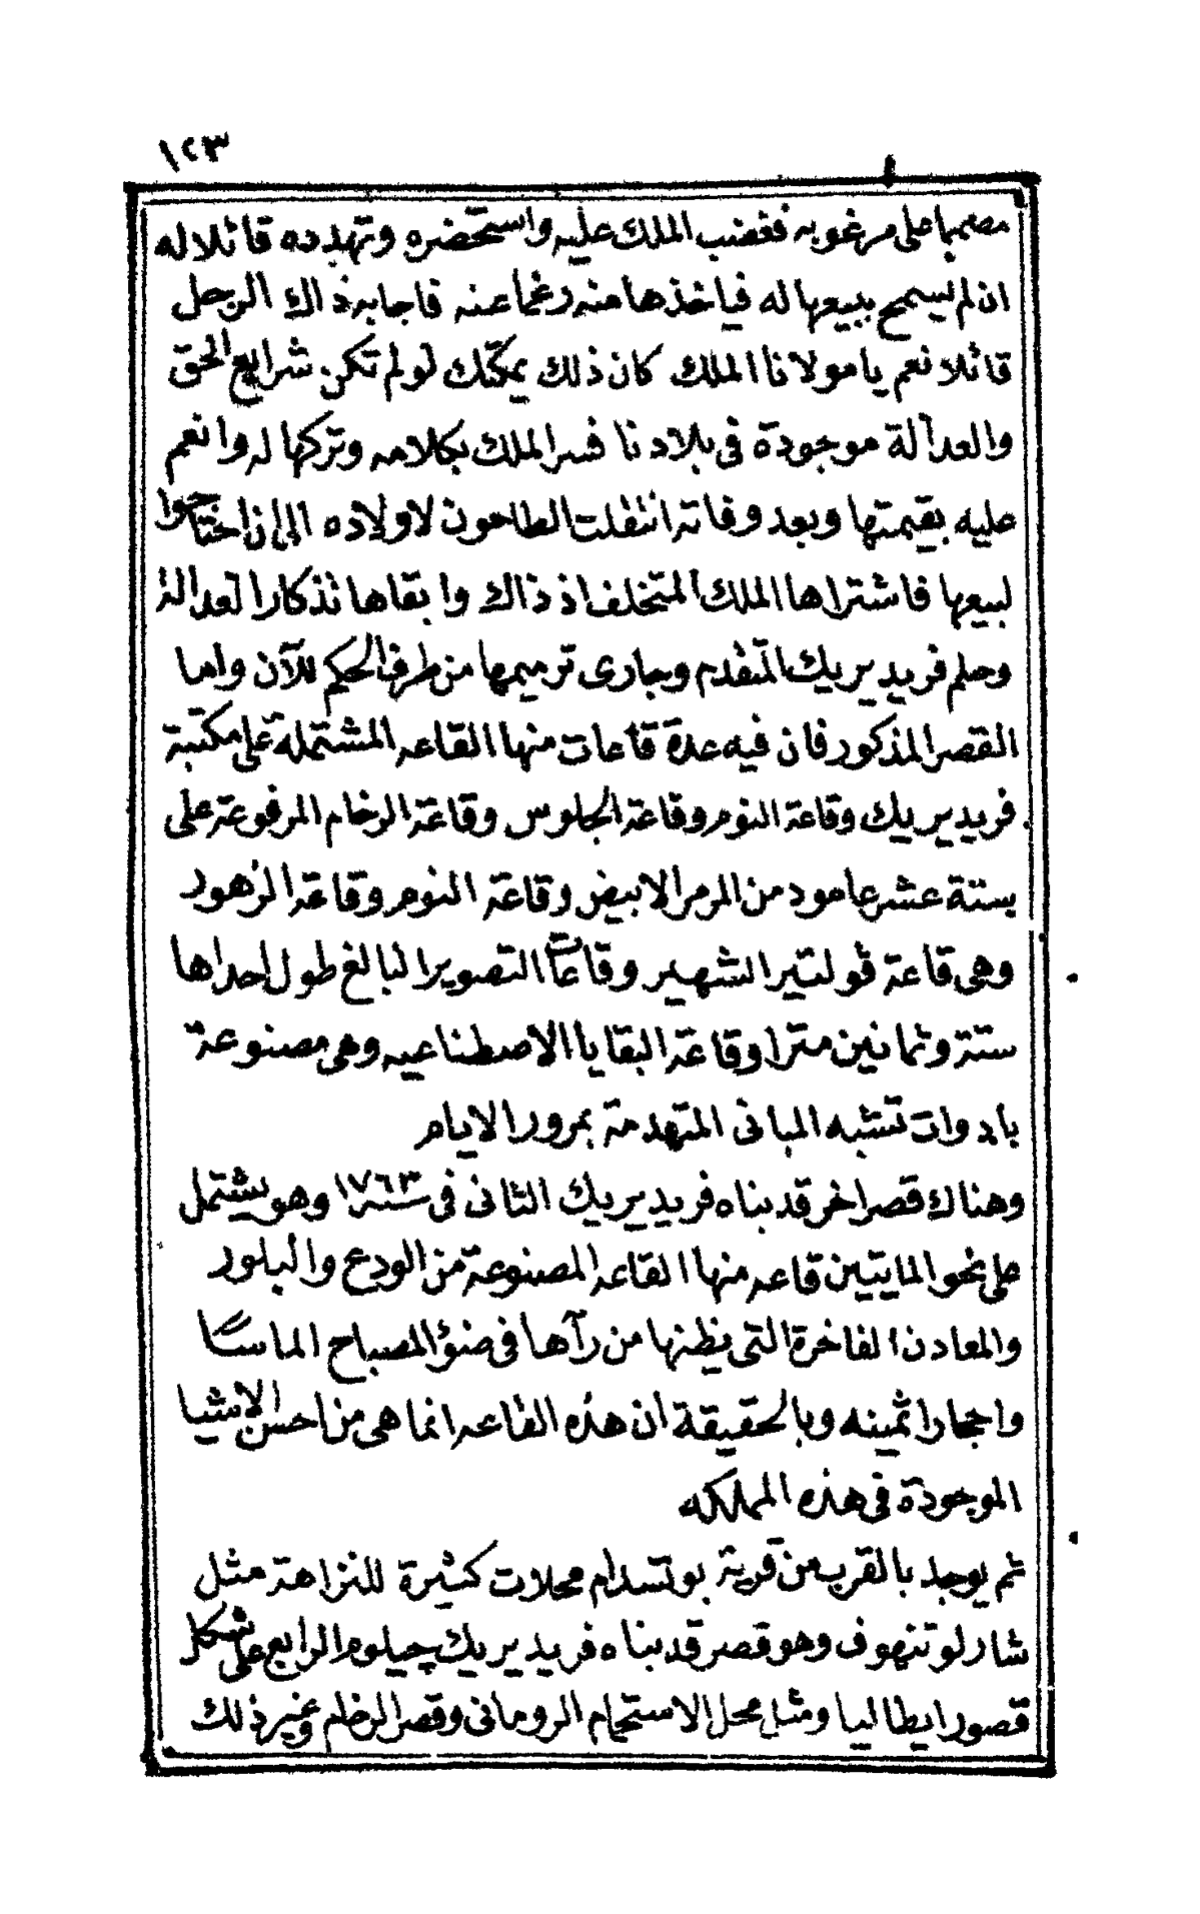 ١٢٣
مصمما على مرغوبه فغضب الملك عليه واستحضره وتهدده قائلا له
ان لم يسمح ببيعها له فياخذها منه رغما عنه فاجابه ذاك الرجل
قائلا نعم يا مولانا الملك كان ذلك يمكنك لو لم تكن شرايع الحق
والعدالة موجودة في بلادنا فسر الملك بكلامه وتركها له وانعم
عليه بقيمتها وبعد وفاته انتقلت الطاحون لاولاده الى ان احتاجوا
لبيعها فاشتراها الملك المتخلف اذ ذاك وابقاها تذكارا لعدالة
وحلم فريديريك المتقدم وجارى ترميمها من طرف الحكم للآن واما
القصر المذكور فان فيه عدة قاعات منها القاعه المشتملة على مكتبة
فريديريك وقاعة النوم وقاعة الجلوس وقاعة الرخام المرفوعة على
بستة عشر عامود من المرمر الابيض وقاعة النوم وقاعة الزهور
وهى قاعة ڤولتير الشهير وقاعات التصوير البالغ طول احداها
ستة وثمانين مترا وقاعة البقايا الاصطناعيه وهى مصنوعة
بادوات تشبه المبانى المتهدمة بمرور الايام
وهناك قصر اخر قد بناه فريديريك الثانى فى سنة ١٧٦٣ وهو يشتمل
على نحو المايتين قاعه منها القاعه المصنوعة من الودع والبلور
والمعادن الفاخرة التى يظنها من رآها فى ضؤ المصباح الماسا
واحجارا ثمينه وبالحقيقة ان هذه القاعه انما هى من احسن الاشيا
الموجودة فى هذه المملكه
ثم يوجد بالقرب من قرية بوتسدام محلات كثيرة للنزاهة مثل
شارلوتنهوف وهو قصر قد بناه فريديريك چيلوم الرابع على شكل
قصور ايطاليا ومثل محل الاستحمام الرومانى وقصر الرخام وغير ذلك